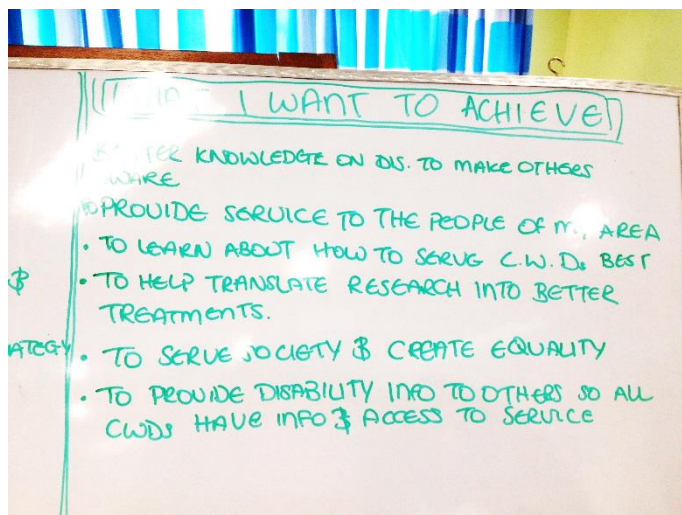 I WANT TO ACHIEVE
KNOWLEDGE ON DIS. TO MAKE OTHERS
TO PROVIDE SERVICE TO THE PEOPLE OF MY AREA
• TO LEARN ABOUT HOW TO SERVE C.W.Ds BEST
$
• TO HELP TRANSLATE RESEARCH INTO BETTER
TREATMENTS.
ATEGY
• TO SERVE SOCIETY & CREATE EQUALITY
• TO PROVIDE DISABILITY INFO TO OTHERS SO ALL
CWDS HAVE INFO & ACCESS TO SERVICE